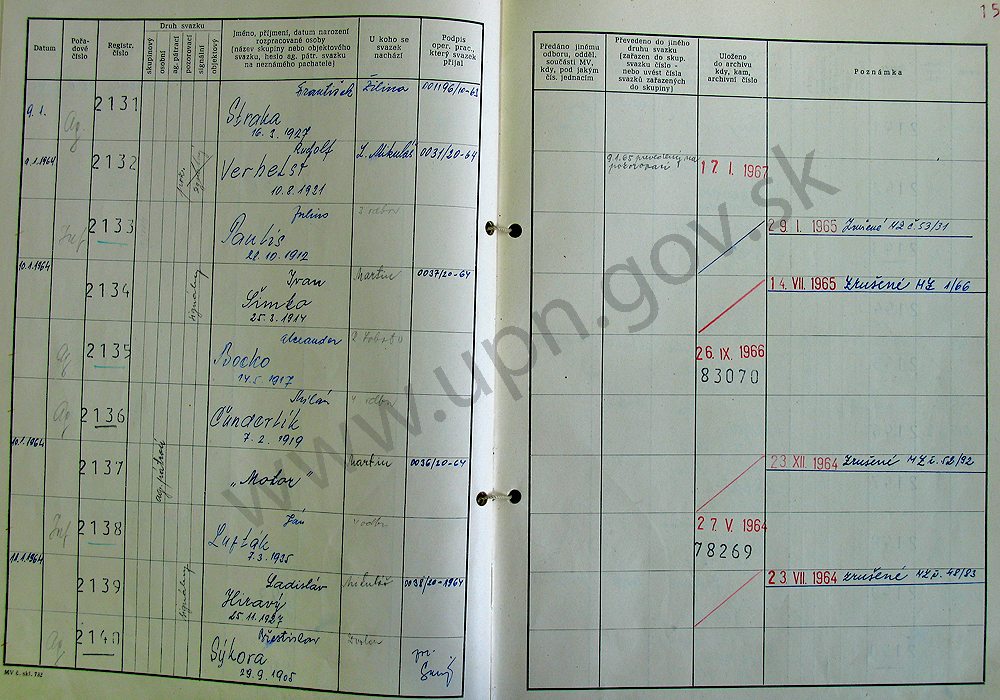 Druh svazku
Datum
Pořadové číslo
Registr. číslo
skupinový
osobní
ag. pátrací
pozorovací
signální
objektový
Jméno, příjmení, datum narození
rozpracované osoby
(název skupiny nebo objektového
svazku, heslo ag. pátr. svazku
na neznámého pachatele)
U koho se
svazek
nachází
Podpis
oper. prac.,
který svazek
přijal
9. 1.
Ag.
2131
František
Straka
16. 3. 1927
Žilina
001196/10-63
9.1.1964
2132
Rudolf
Verhelst
10. 8. 1921
L. Mikuláš
0031/20-64
Inf
2133
Július
Paulis
28. 10. 1912
3 odbor
10.1.1964
2134
signálny
Ivan
Šimko
25. 3. 1914
Martin
0037/20-64
Ag
2135
Alexander
Bocko
14. 5. 1917
Ag
2136
Milán
Čunderlík
7. 2. 1919
4 odbor
10.1.1964
2137
ag. pátrací
„Motor"
Martin
0036/20-64
Inf
2138
Ján
Lufták
7. 3. 1935
4 odbor
11.1.1964
2139
signálny
Ladisláv
Hiravý
25. 11. 1927
Mikuláš
0038/20-1964
Ag.
2140
Břetislav
Sýkora
29. 9. 1905
Zvolen
MV č. skl. 732
15
Předáno jinému
odboru, odděl.
součásti MV,
kdy, pod jakým
čís. jednacím
Převedeno do jiného
druhu svazku
(zařazen do skup.
svazku číslo -
nebo uvést čísla
svazků zařazených
do skupiny)
Uloženo
do archivu
kdy, kam,
archivní číslo
Poznámka
9.1.65 prevedený na
pozorovací
17. I. 1967
29. I. 1965 Zničené MZ č. 53/31
14. VII. 1965 Zrušené MZ 1/66
26. IX. 1966
83070
23. XII. 1964 Zrušené MZ č. 52/92
27. V. 1964
78269
23. VII. 1964 zrušené MZ č. 48/83
www.upn.gov.sk